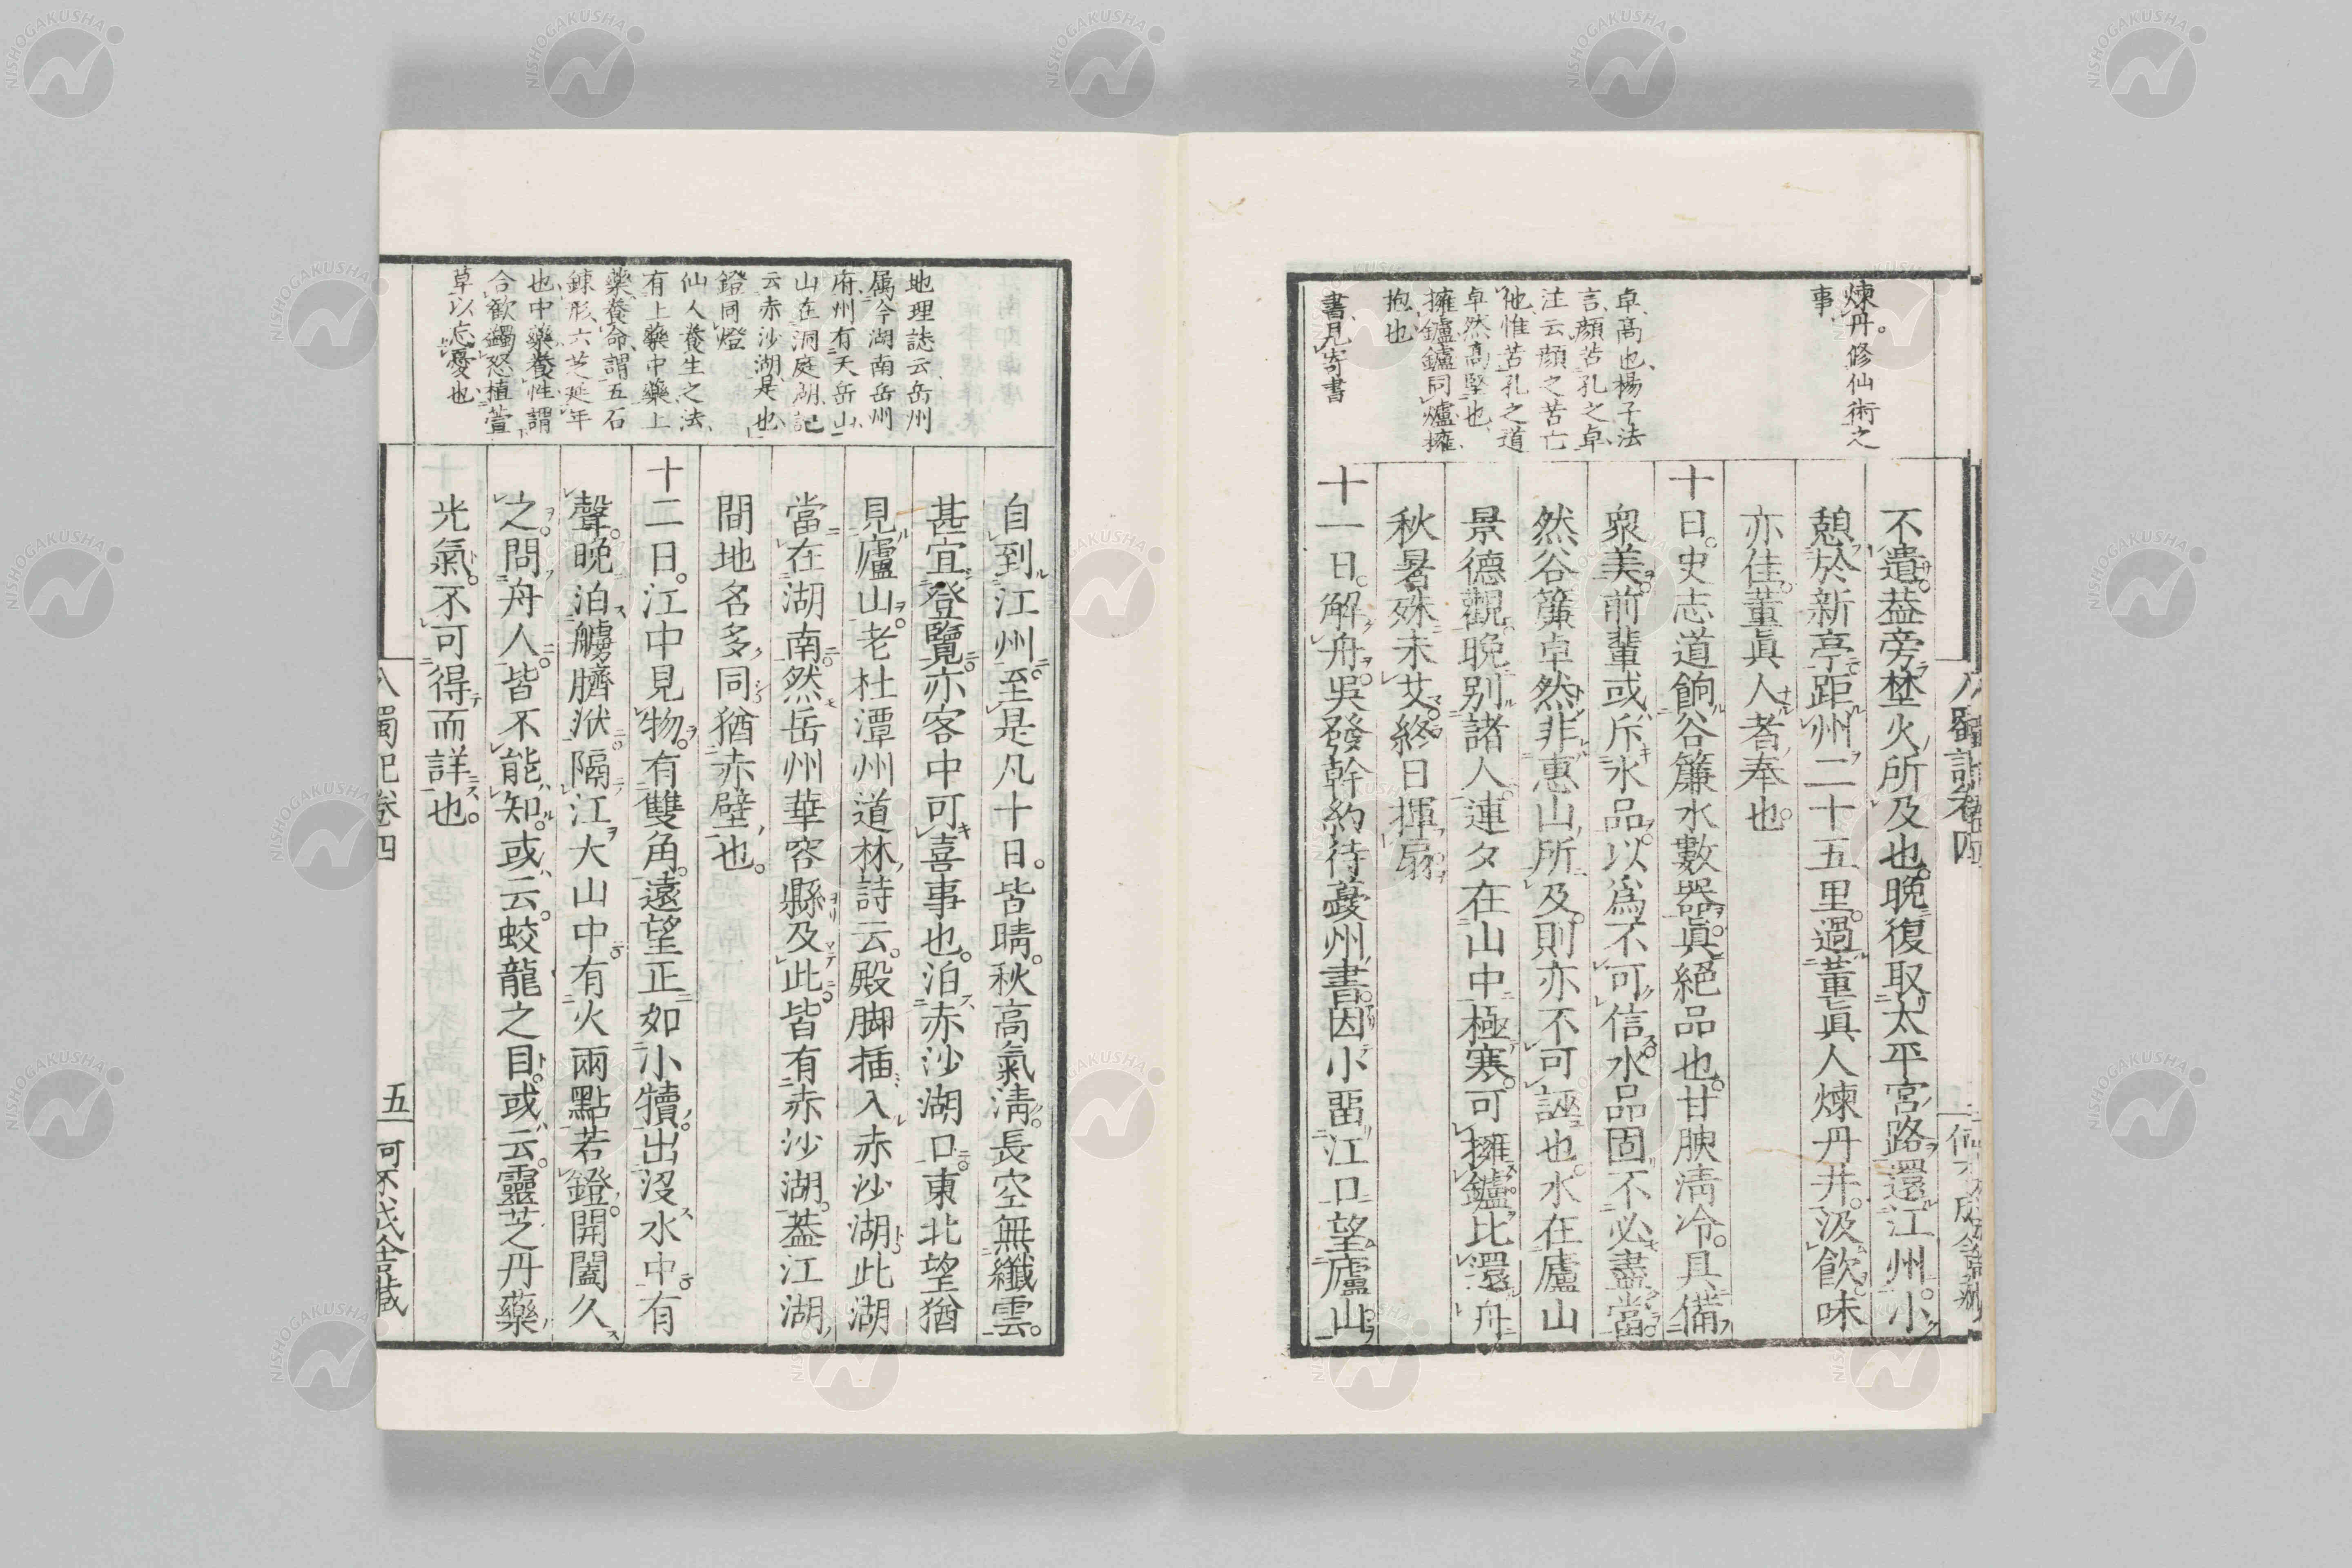 煉丹。修仙術之
事
卓、高也、楊子法
言、顏苦孔之卓、
注云、顏之苦亡
他、惟苦孔之道
卓然高堅也、
擁鑪、鑪同爐、擁、
抱也
書、見寄書
不遺。葢旁埜火所及也。晩復取太平宮路。還江州。小
憩於新亭。距州二十五里。過董眞人煉丹井。汲飲。味
亦佳。董眞人者奉也。
十日。史志道餉谷簾水數器。眞絕品也。甘腴淸冷。具備
衆美。前輩或斥水品。以爲不可信。水品固不必盡當。
然谷簾卓然。非惠山所及。則亦不可誣也。水在廬山
景德觀。晩別諸人。連夕在山中極寒。可擁鑪。比還舟
秋暑殊未艾。終日揮扇
十一日。解舟。吳發幹約待蘷州書。因小畱江口。望廬山。
自到江州。至是凡十日。皆晴。秋高氣淸。長空無纖雲。
甚宜登覽。亦客中可喜事也。泊赤沙湖口。東北望猶
見廬山。老杜潭州道林詩云。殿脚插入赤沙湖。此湖
當在湖南。然岳州華容縣及此。皆有赤沙湖。葢江湖
間地名多同。猶赤壁也。
十二日。江中見物。有雙角。遠望正如小犢。出沒水中。有
聲。晩泊艣臍洑。隔江大山中。有火兩點若鐙。開闔久
之。問舟人。皆不能知。或云。蛟龍之目。或云。靈芝丹藥
光氣。不可得而詳也。
地理誌云、岳州
属今湖南岳州
府、州有天岳山、
山在洞庭湖、記
云、赤沙湖、是也、
鐙同燈
仙人養生之法、
有上藥中藥、上
藥養命、謂五石
錬形、六芝延年
也、中藥養性、謂
合歡蠲怒、植萱
草以忘憂也
五